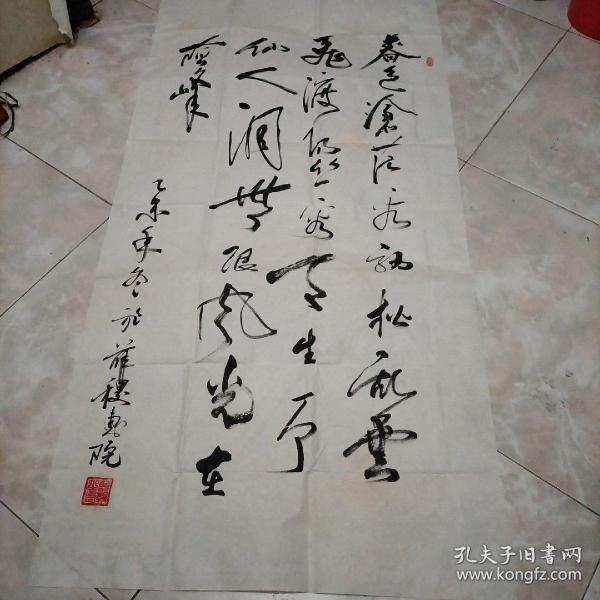 暮色滄茫看劲松乱雲
飛渡仍从容天生一个
仙人洞無限風光在
险峰
乙未年冬於
孔夫子旧书网
www.kongfz.com